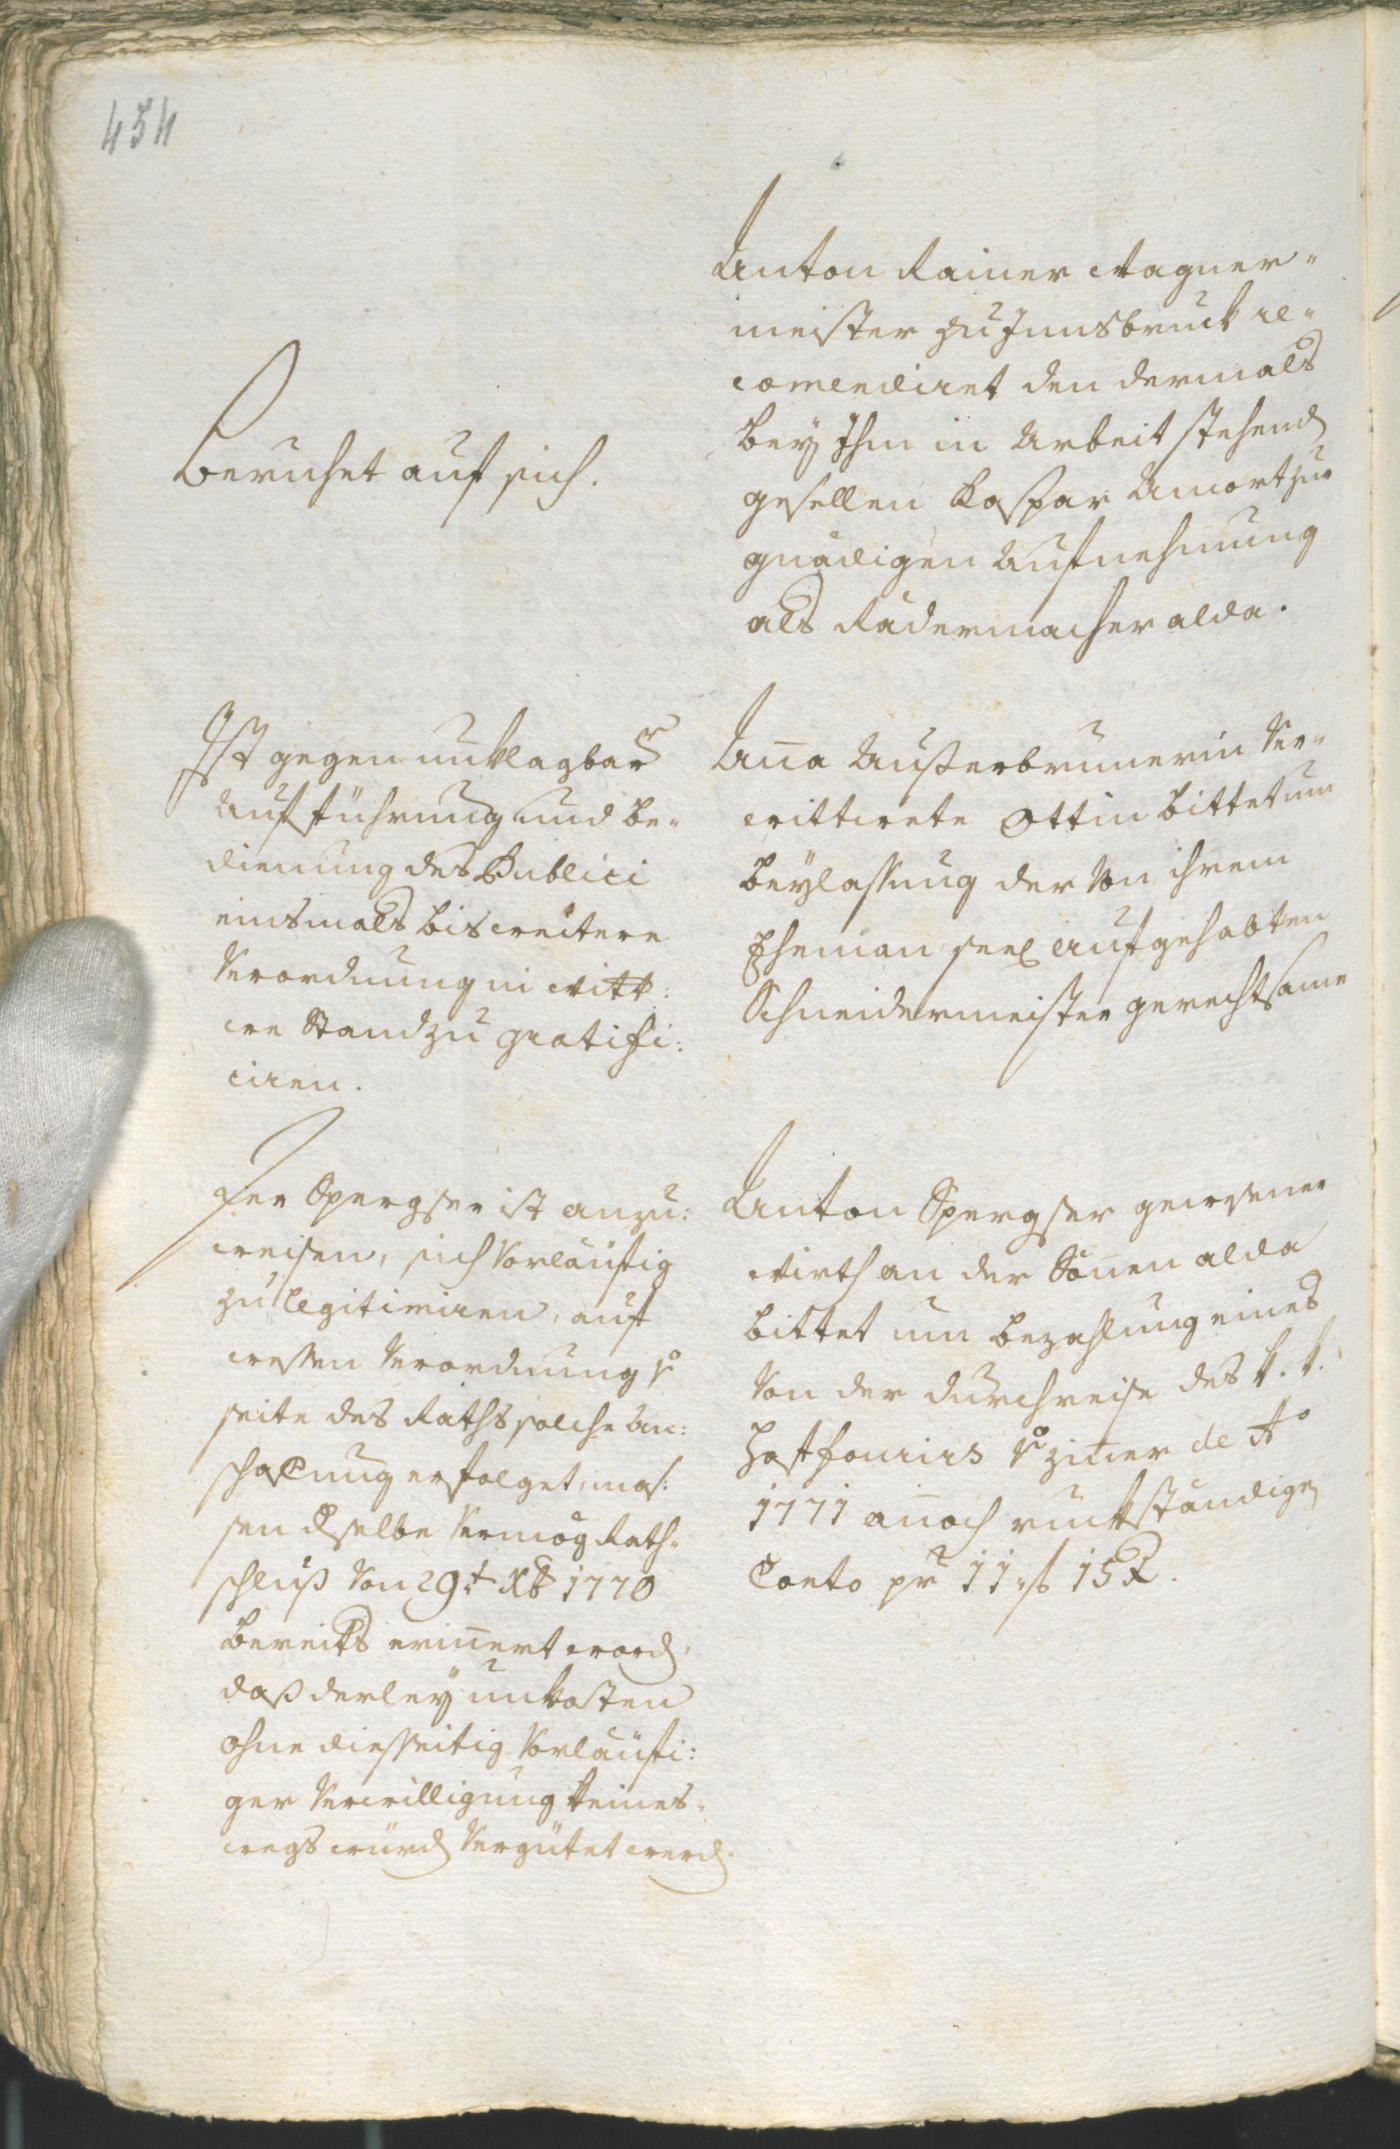 454
Anton Rainer Wagner-
meister zu Innsbruck re-
comendiret den dermals
bey Ihm in Arbeit stehend
gesellen Kaspar Amort zur
gnädigen Aufnehmung
als Rädermacher alda.
Beruhet auf sich.
Anna Außerbrunerin Ver-
wittwete Ottin bittet um
beylassung der von ihrem
Eheman seel aufgehabten
Schneidermeister gerechtsame
Ist gegen unklagbar
Aufführung und be-
dienung des Publici
einsmals bis weitere
Verordnung in Witt:
we Stand zu gratifi:
ciren.
Anton Spergser gewesener
Wirth an der Sonnen alda
bittet um bezahlung eines
von der durchreise des k. k.
Hoffouriers zimer de Ao
1771 annoch ruckständigen
Conto pr 11 f 15 x.
Der Spergser ist anzu:
weisen, sich vorläufig
zu legitimiren, auf
wessen Verordnung
seite des Raths solche An:
schaffung erfolget, mas:
sen dselbe vermög Rath-
schluß von 29t Xb 1770
bereits erinnert word,
daß derley unkosten
ohne diesseitig vorläufi:
ger Verwilligung keines-
wegs würd vergütet werd.